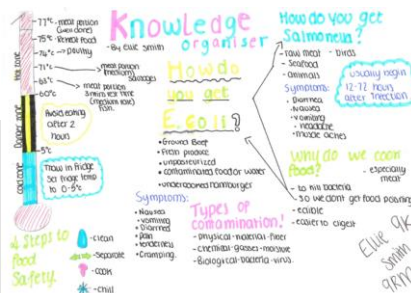 77°C - meat portion
(well done)
75°C - Reheat food
74°C → poultry
71°C
meat portion
(medium)
sausages
63°C
meat portion
(medium rare)
fish.
60°C
Hot zone
Danger zone
Avoid eating
after 2
hours
5°C
Cold zone
Thaw in fridge
Set fridge temp
to 0-5°C
4 Steps to
food
Safety.
- clean
- Separate
- cook
- chill
Knowledge
organiser
- By Ellie Smith
How do
you get
E. coli?
• Ground Beef
• Fresh produce
• unpasteurized
• contaminated food or water
• undercooked hamburger
Symptoms:
• Nausea
• vomiting
• Diarrhea
• pain
• tenderness
• Cramping.
Types of
contamination!
- physical-material-fiber
- chemical-gasses-moisture
- Biological-bacteria-virus.
How do you get
Salmonella?
- raw meat - birds
- Seafood
- animals
Symptoms:
- Diarrhea
- nausea
- vomiting
- headache
- muscle aches
usually begin
12-72 hours
after infection.
Why do we cook
food?
- especially
meat
- to kill bacteria
- so we dont get food poisoning
- edible
- easier to digest
Ellie
Smith
9RM